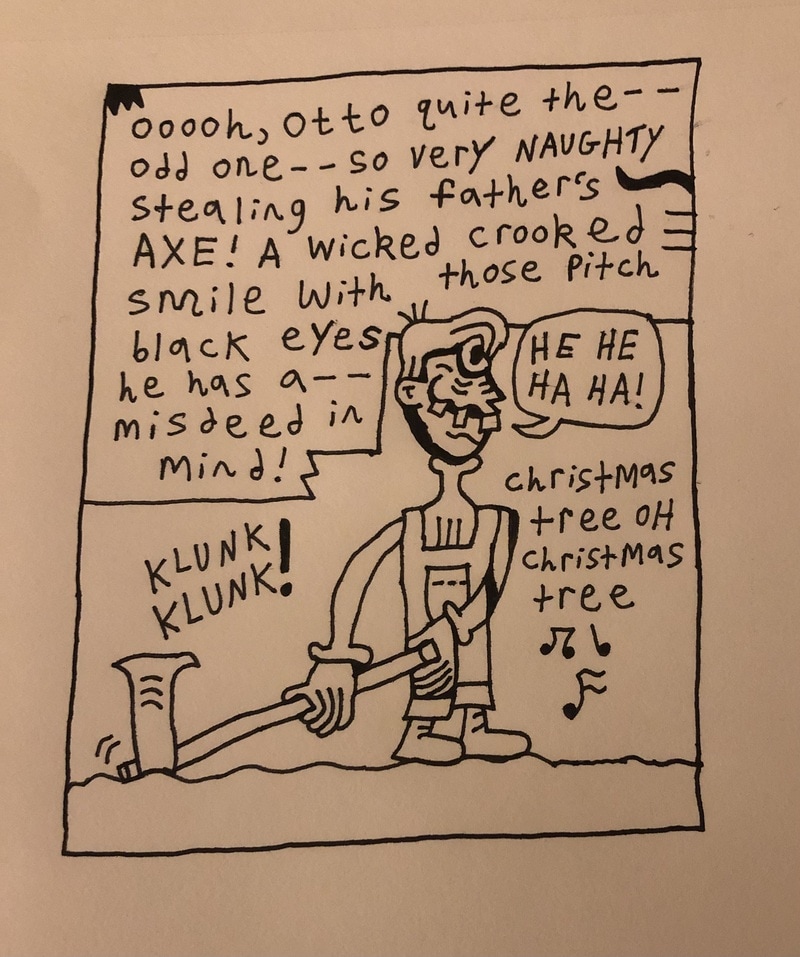 ooooh, Otto quite the--
odd one--so very NAUGHTY
stealing his father's
AXE! A wicked crooked
smile with those pitch
black eyes
he has a--
misdeed in
mind!
HE HE
HA HA!
christmas
tree OH
christmas
tree
KLUNK
KLUNK!